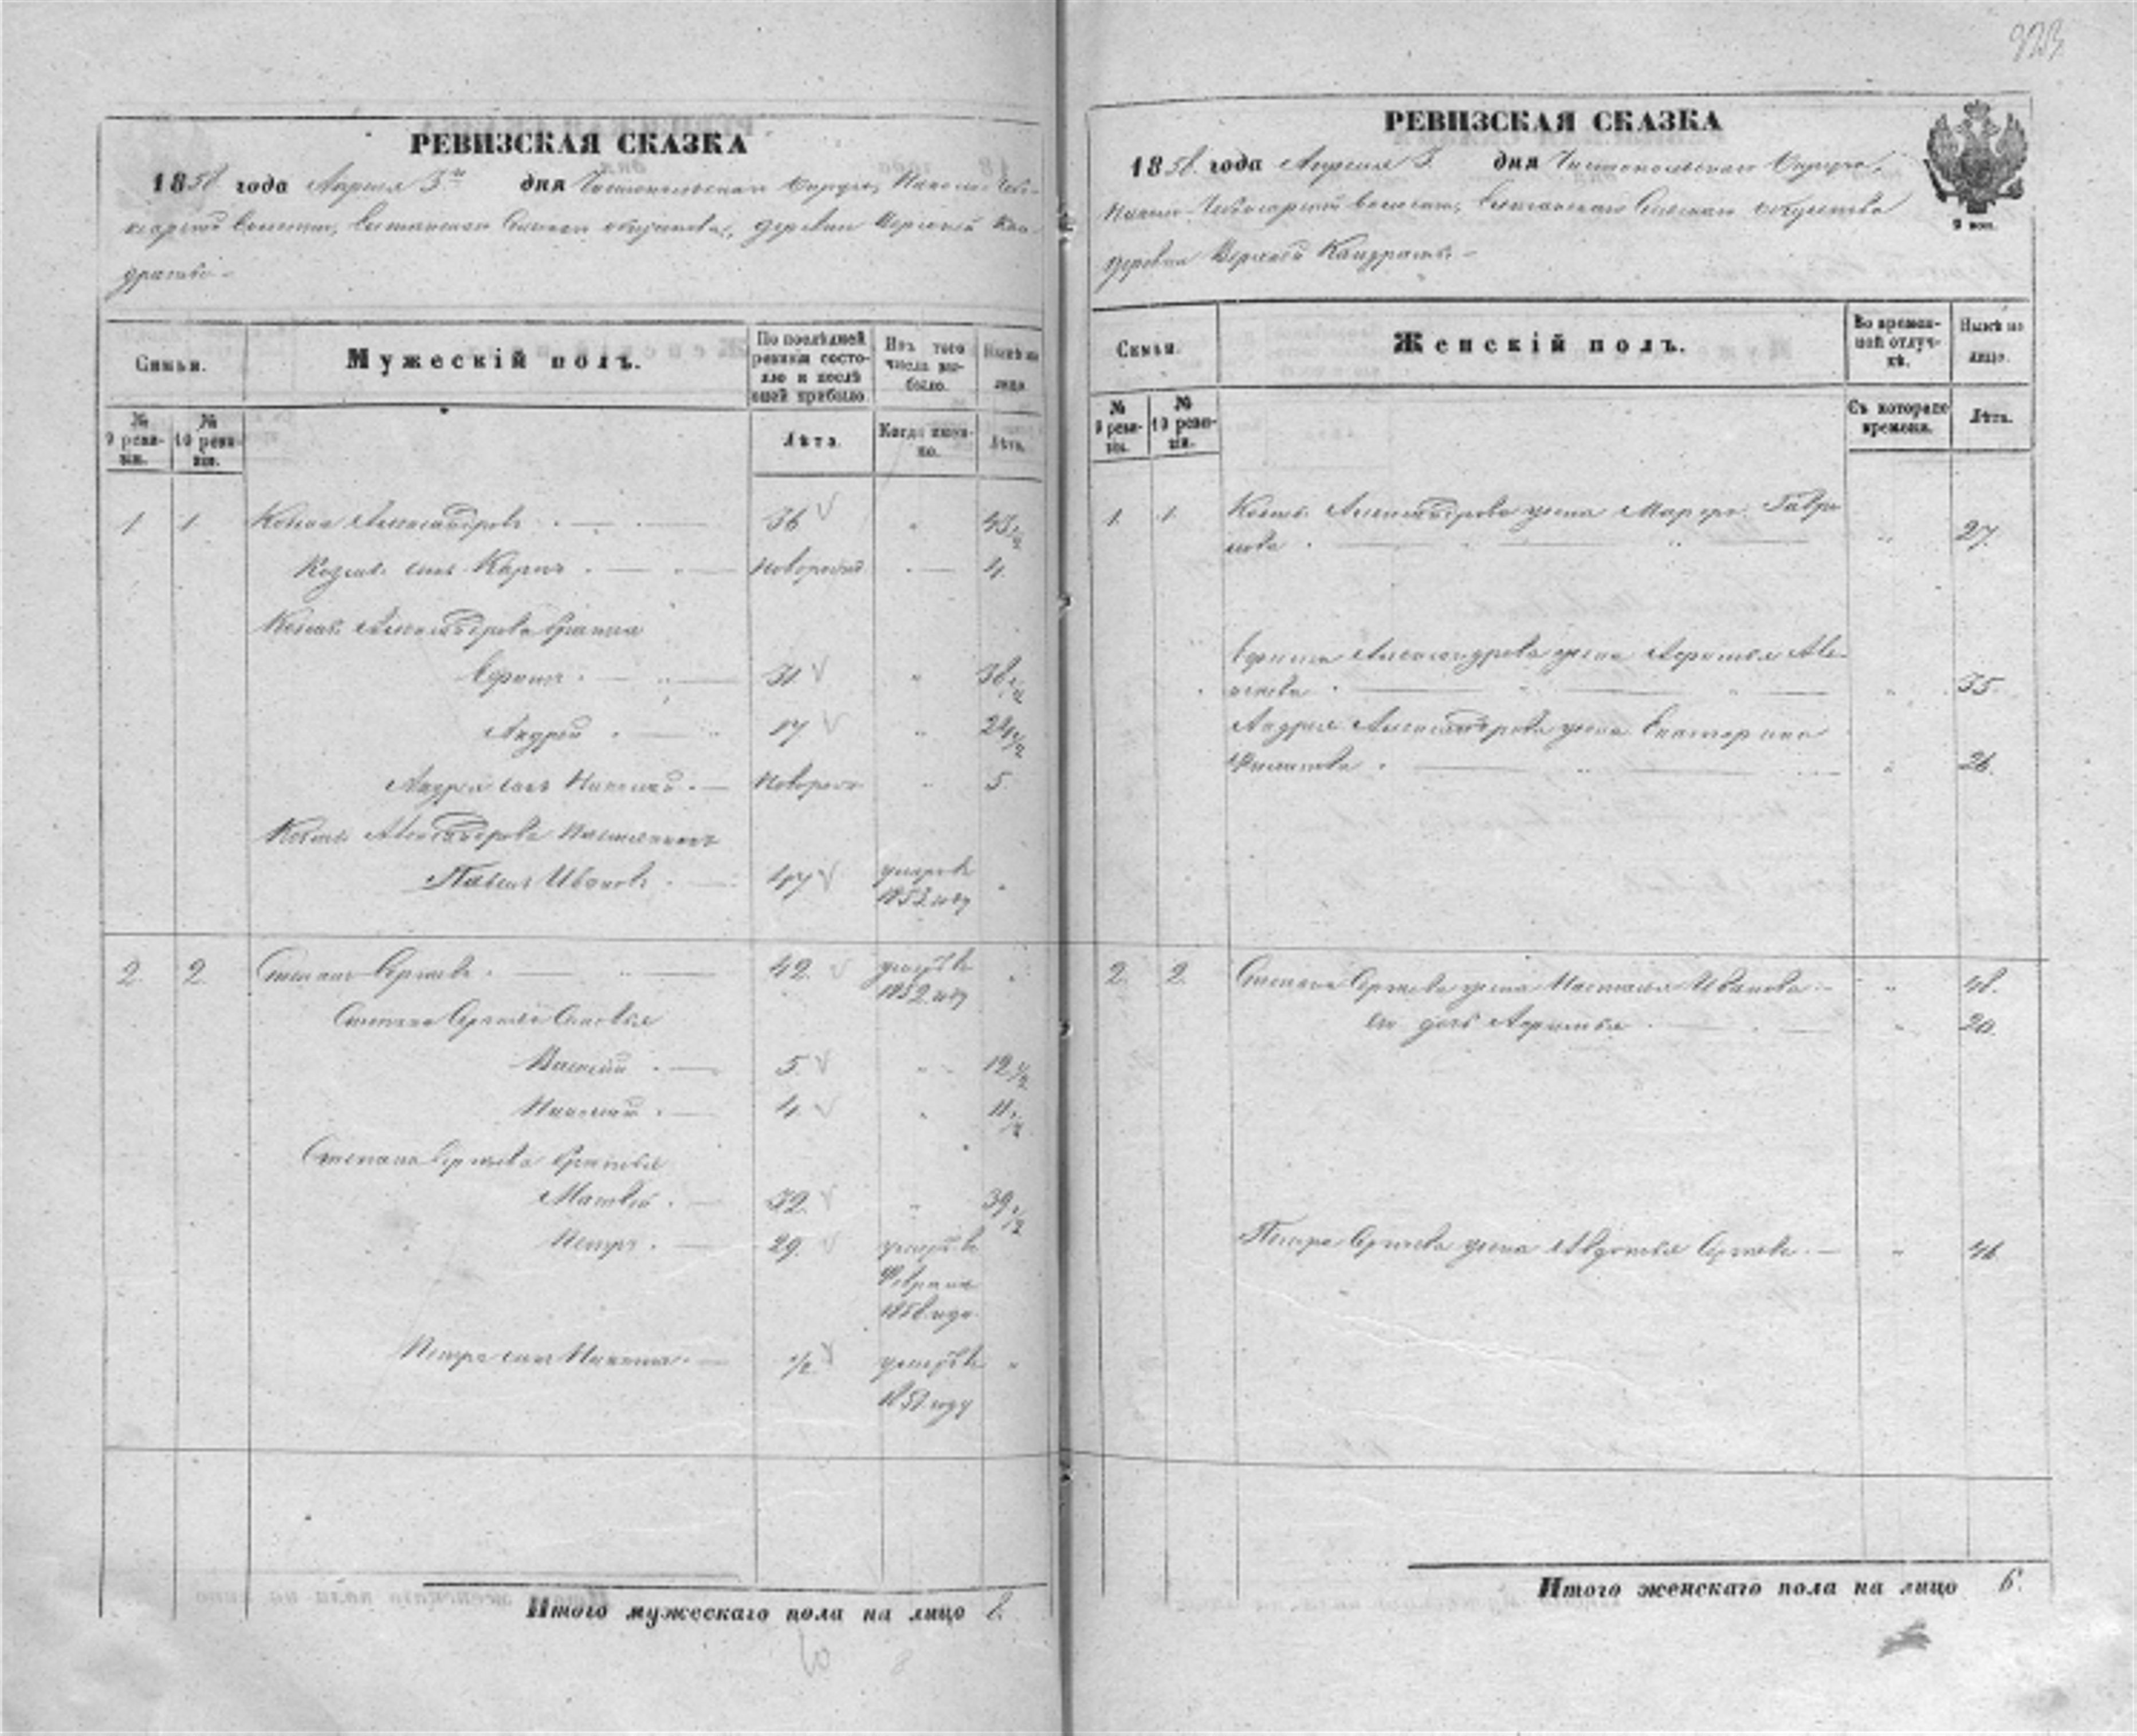 323
РЕВИЗСКАЯ СКАЗКА
1858 года Апреля 3 дня Чистопольскаго Округа,
волости, Сельскаго общества, деревни Верхней Кан-
драты
Семьи.
Мужескій полъ.
По послѣдней ревизіи состояло и послѣ оной прибыло
Изъ того числа выбыло.
Нынѣ на лицо
№ 9 ревизіи.
№ 10 ревизіи.
Лѣта.
Когда именно.
Лѣта.
1 1 Козма Александровъ 36 " 43 1/2
Козмы сынъ Карпъ новорожд 4
Козмы Александрова братья
Ефимъ 31 " 38 1/2
Андрей 17 " 24 1/2
Андрея сынъ Николай новорож " 5
Козмы Александрова племянникъ
Павелъ Ивановъ 47 умеръ въ "
1853 году
2 2 Степанъ Сергѣевъ 42 умеръ въ "
1852 году
Степана Сергѣева Сыновья
Василій 5 " 12 1/2
Николай 4 " 11 1/2
Степана Сергѣева братья
Матвѣй 32 " 39 1/2
Петръ 29 умеръ въ
Февралѣ
1858 года
Петра сынъ Никита 1/2 умеръ въ "
году
Итого мужескаго пола на лицо 8.
10 8
РЕВИЗСКАЯ СКАЗКА
1858 года Апреля 3 дня Чистопольскаго Округа,
волости, Сельскаго общества
деревни Верхней Кандраты
9 коп.
Семьи.
Женскій полъ.
Во временной отлучкѣ.
Нынѣ на лицо.
№ 9 ревизіи.
№ 10 ревизіи.
Съ котораго времени.
Лѣта.
1. 1. Козмы Александрова жена Марфа Гаври
лова " 27.
Ефима Александрова жена Але-
" 35.
Андрея Александрова жена Екатерина
Филипова " 26.
2. 2. Степана Сергѣева жена Настасья Иванова " 48.
его дочь " 20.
Петра Сергѣева жена Авдотья Сергѣева "
Итого женскаго пола на лицо 6.